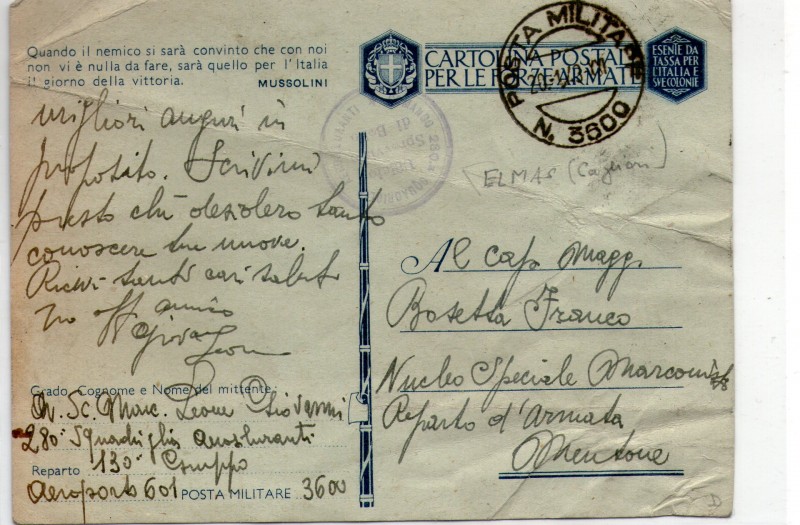 Quando il nemico si sarà convinto che con noi
non vi è nulla da fare, sarà quello per l'Italia
il giorno della vittoria.
MUSSOLINI
CARTOLINA POSTALE
PER LE FORZE ARMATE
ESENTE DA
TASSA PER
L'ITALIA E
SVE COLONIE
POSTA MILITARE
N. 3600
280.a SQUADRIGLIA
migliori auguri in
proposito. Scrivimi
presto chè desidero tanto
conoscere tue nuove.
Ricevi tanti cari saluti
tuo aff amico
Giova
Leone
ELMAS (Cagliari)
Al cap. Magg.
Bosetta Franco
Nucleo Speciale Marconisti
Reparto d'Armata
Mentone
Grado, Cognome e Nome del mittente
Av. Sc. Marc. Leone Giovanni
280ª Squadriglia Aerosiluranti
Reparto 130° Gruppo
Aeroporto 601 POSTA MILITARE 3600